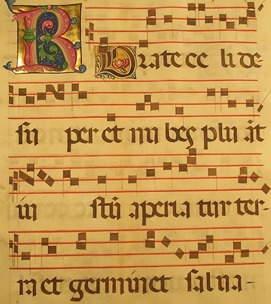 R Orate ce li de
su per et nu bes plu āt
iu stū aperia tur ter-
ra et germinet salua-